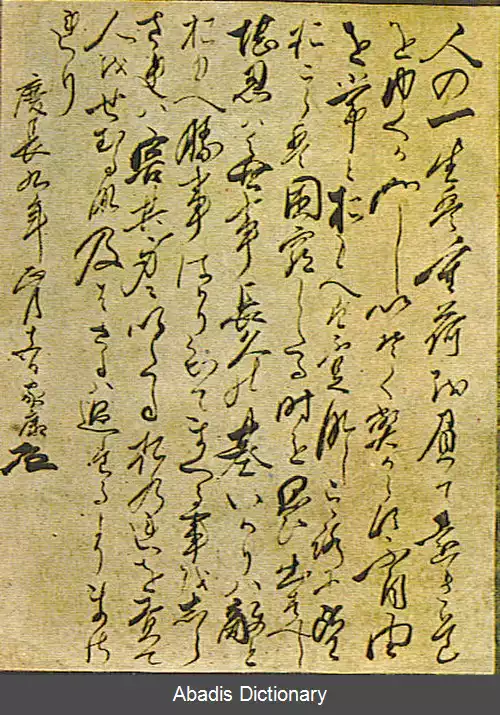 人の一生は重荷を負て遠き道
をゆくかことしいそくへからす不自由
を常とおもへは不足なしこゝろに望
おこらは困窮したる時を思ひ出すへし
堪忍は無事長久の基いかりハ敵と
おもへ勝事はかり知てまくる事をしら
されハ害其身にいたるおのれを責て
人をせむるな及はさるハ過たるよりまさ
れり
慶長九年 正月十五日 家康
Abadis Dictionary